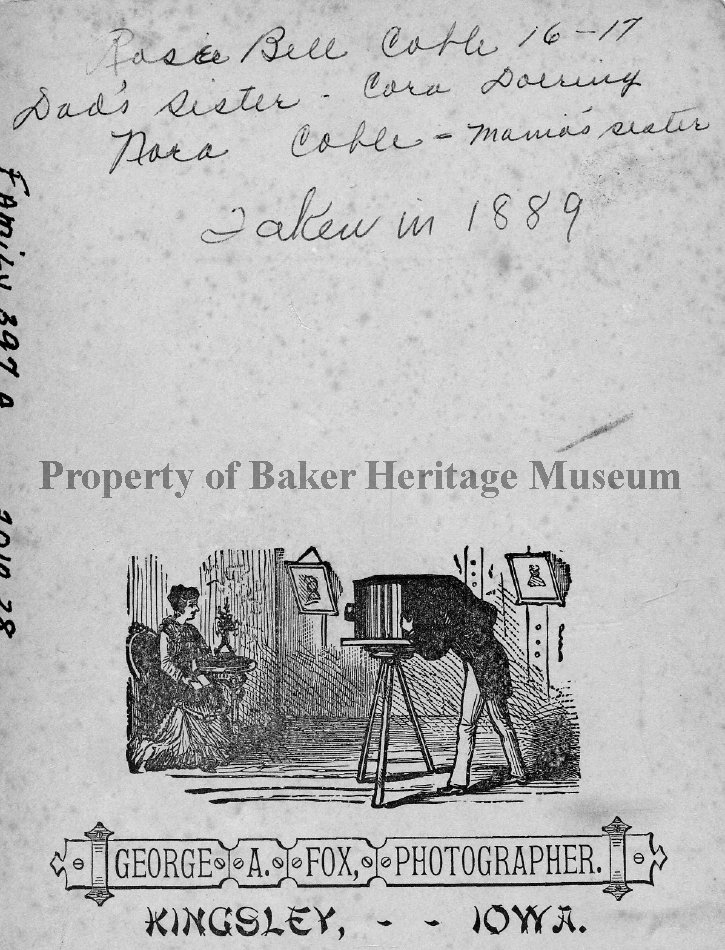 Rosie Bell Coble 16-17
Dad's sister - Cora Doering
Nora Coble - Mama's sister
Taken in 1889
Family 397 A
2010.28
Property of Baker Heritage Museum
GEORGE A. FOX, PHOTOGRAPHER.
KINGSLEY, - - IOWA.